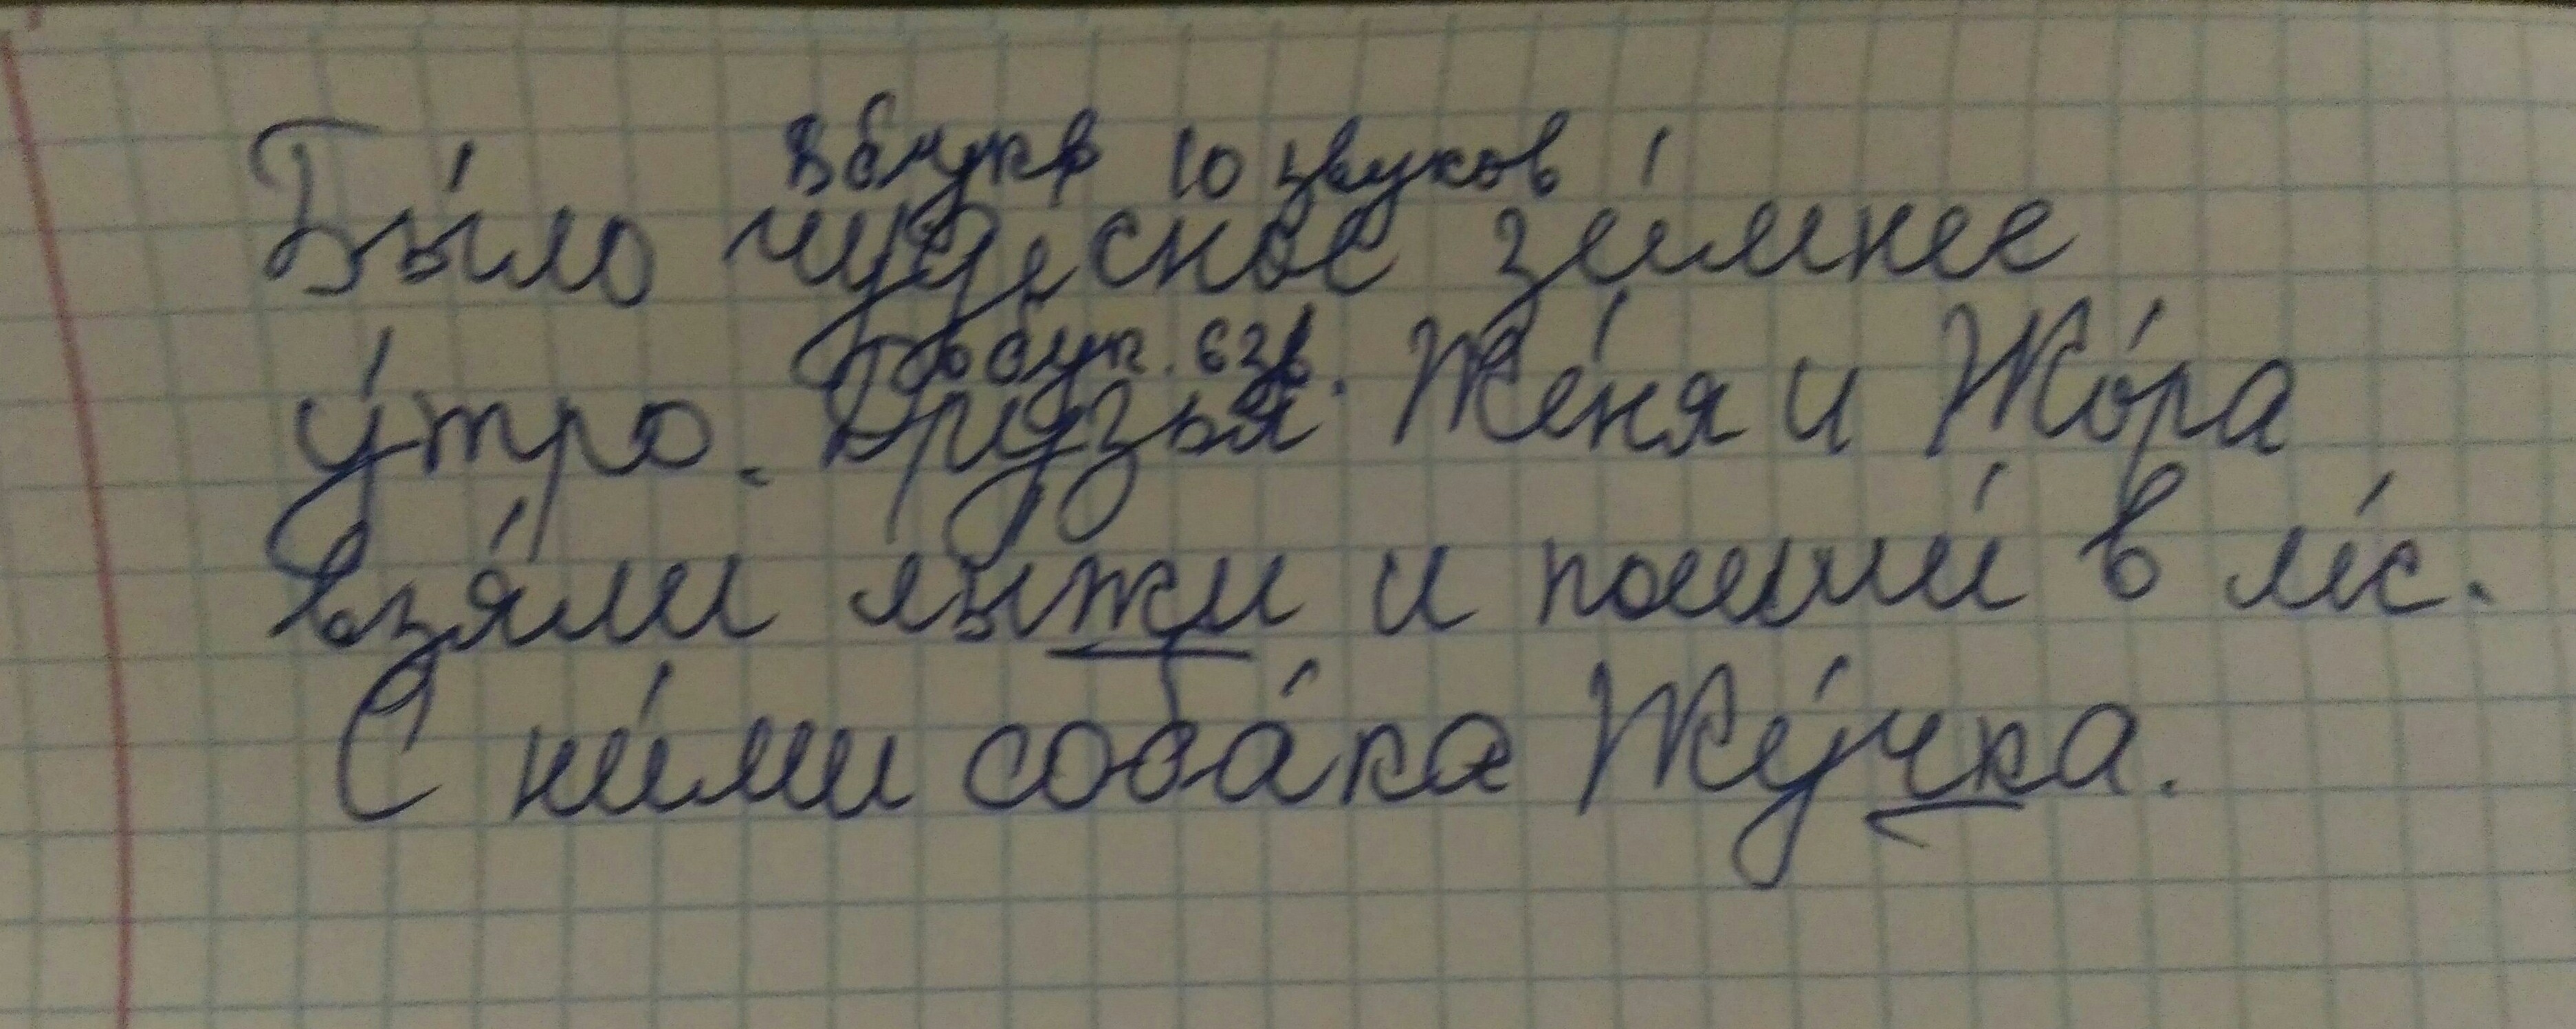 8 букв 10 звуков
Бы́ло чудесное зи́мнее
6 бук. 6 зв.
у́тро. Друзья́ Же́ня и Жо́ра
взя́ли лыжи и пошли́ в ле́с.
С ни́ми соба́ка Жу́чка.